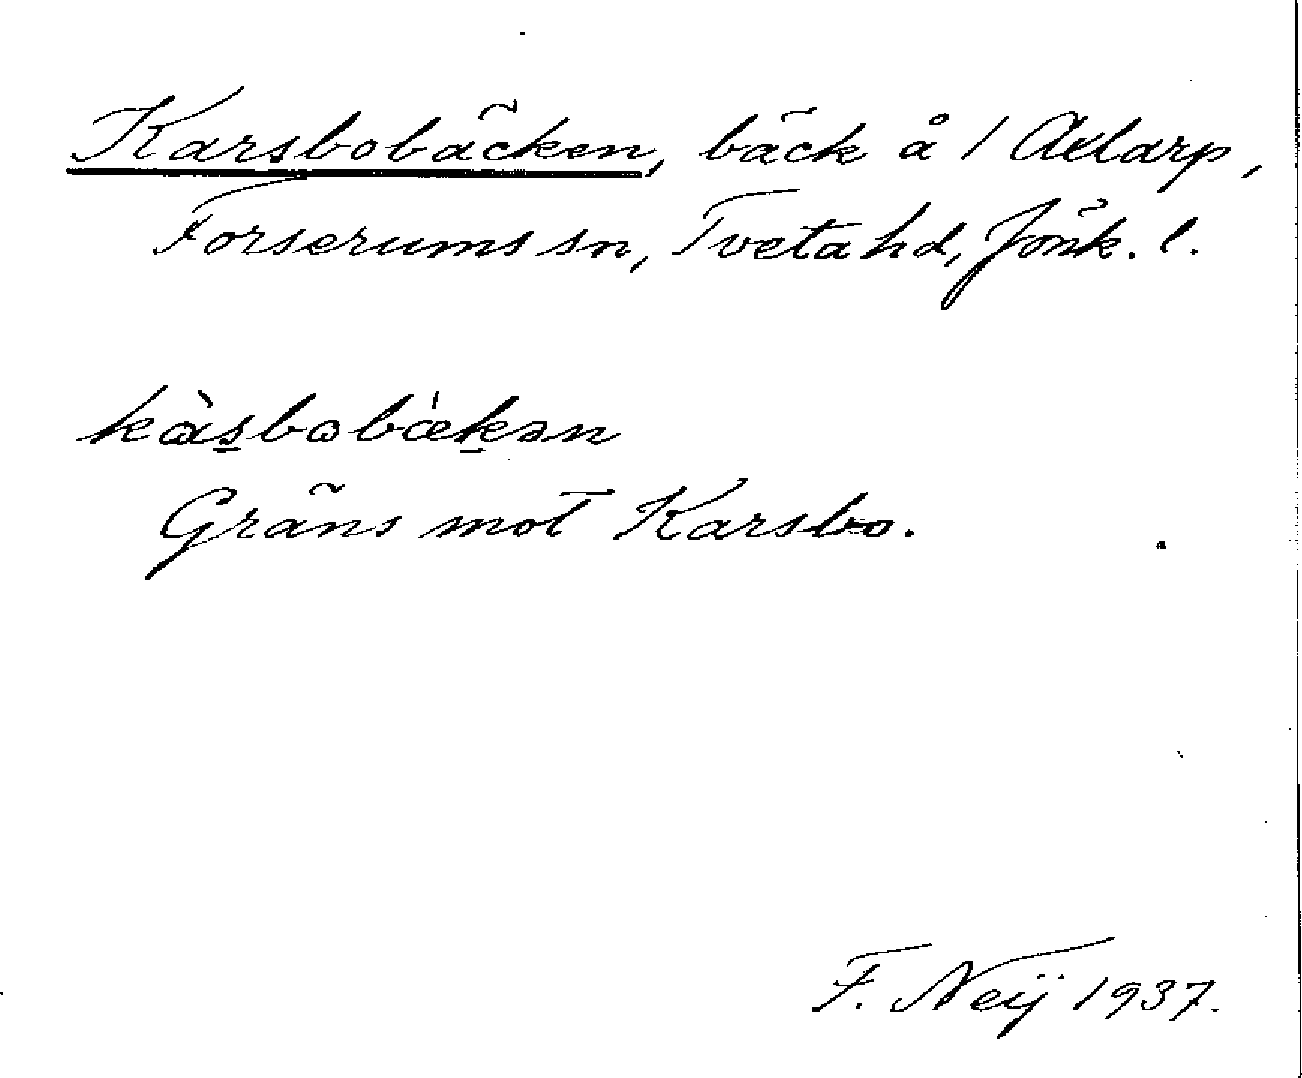 Karsbobäcken, bäck å / Adarp,
Forserums sn, Tveta hd, Jönk. l.
kàsbobækən
Gräns mot Karsbo.
F. Neij 1937.